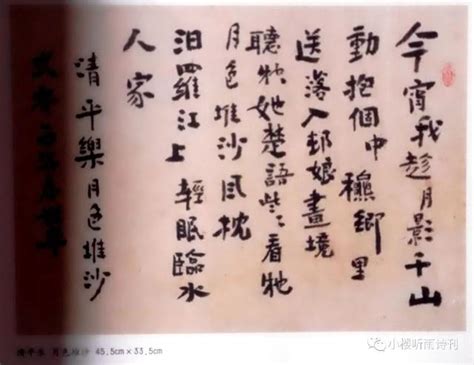 今宵我趁月影千山
動抱個中鄉里
送落入邨娘畫境
聽牠她楚語些些看牠
月色堆沙風枕
汨羅江上 輕眠臨水
人家
清平樂月色堆沙
清平乐 月色堆沙 45.5cm×33.5cm
小楼听雨诗刊